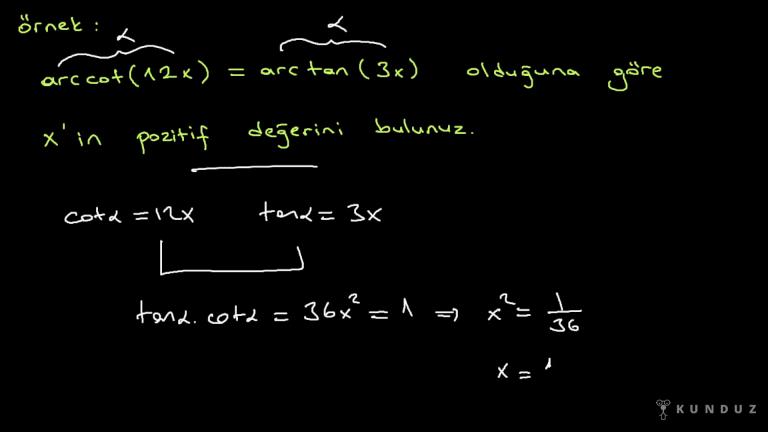 örnek :
α α
arccot(12x) = arctan(3x) olduğuna göre
x'in pozitif değerini bulunuz.
cotα = 12x tanα = 3x
tanα . cotα = 36x² = 1 ⇒ x² = 1/36
x =
KUNDUZ